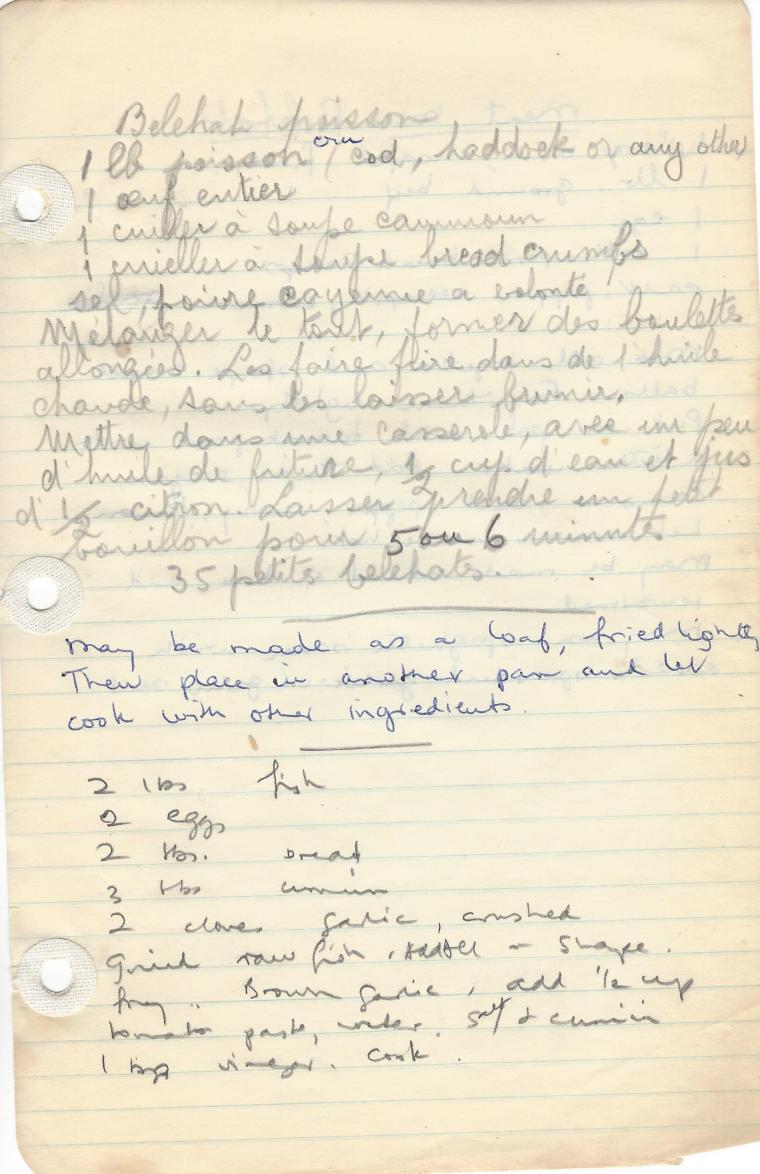 Belehat poisson
1 lb poisson cru (cod, haddock or any other
1 œuf entier
1 cuiller à soupe cammoun
1 cuieller à soupe bread crumbs
sel, poivre cayenne a volonté
Mélanger le tout, former des boulettes
allongées. Les faire frire dans de l'huile
chaude, sans les laisser brunir.
Mettre dans une casserole, avec un peu
d'huile de friture, 1/2 cup d'eau et jus
d'1/2 citron. Laisser prendre un petit
bouillon pour 5 ou 6 minutes
35 petits belehats.
may be made as a loaf, fried lightly
Then place in another pan and let
cook with other ingredients.
2 lbs fish
2 eggs
2 tbs. bread
3 tbs cumin
2 cloves garlic, crushed
Grind raw fish, add all - shape.
fry .. Brown garlic, add 1/2 cup
tomato paste, water. Salt & cumin
1 tbsp vinegar. Cook.